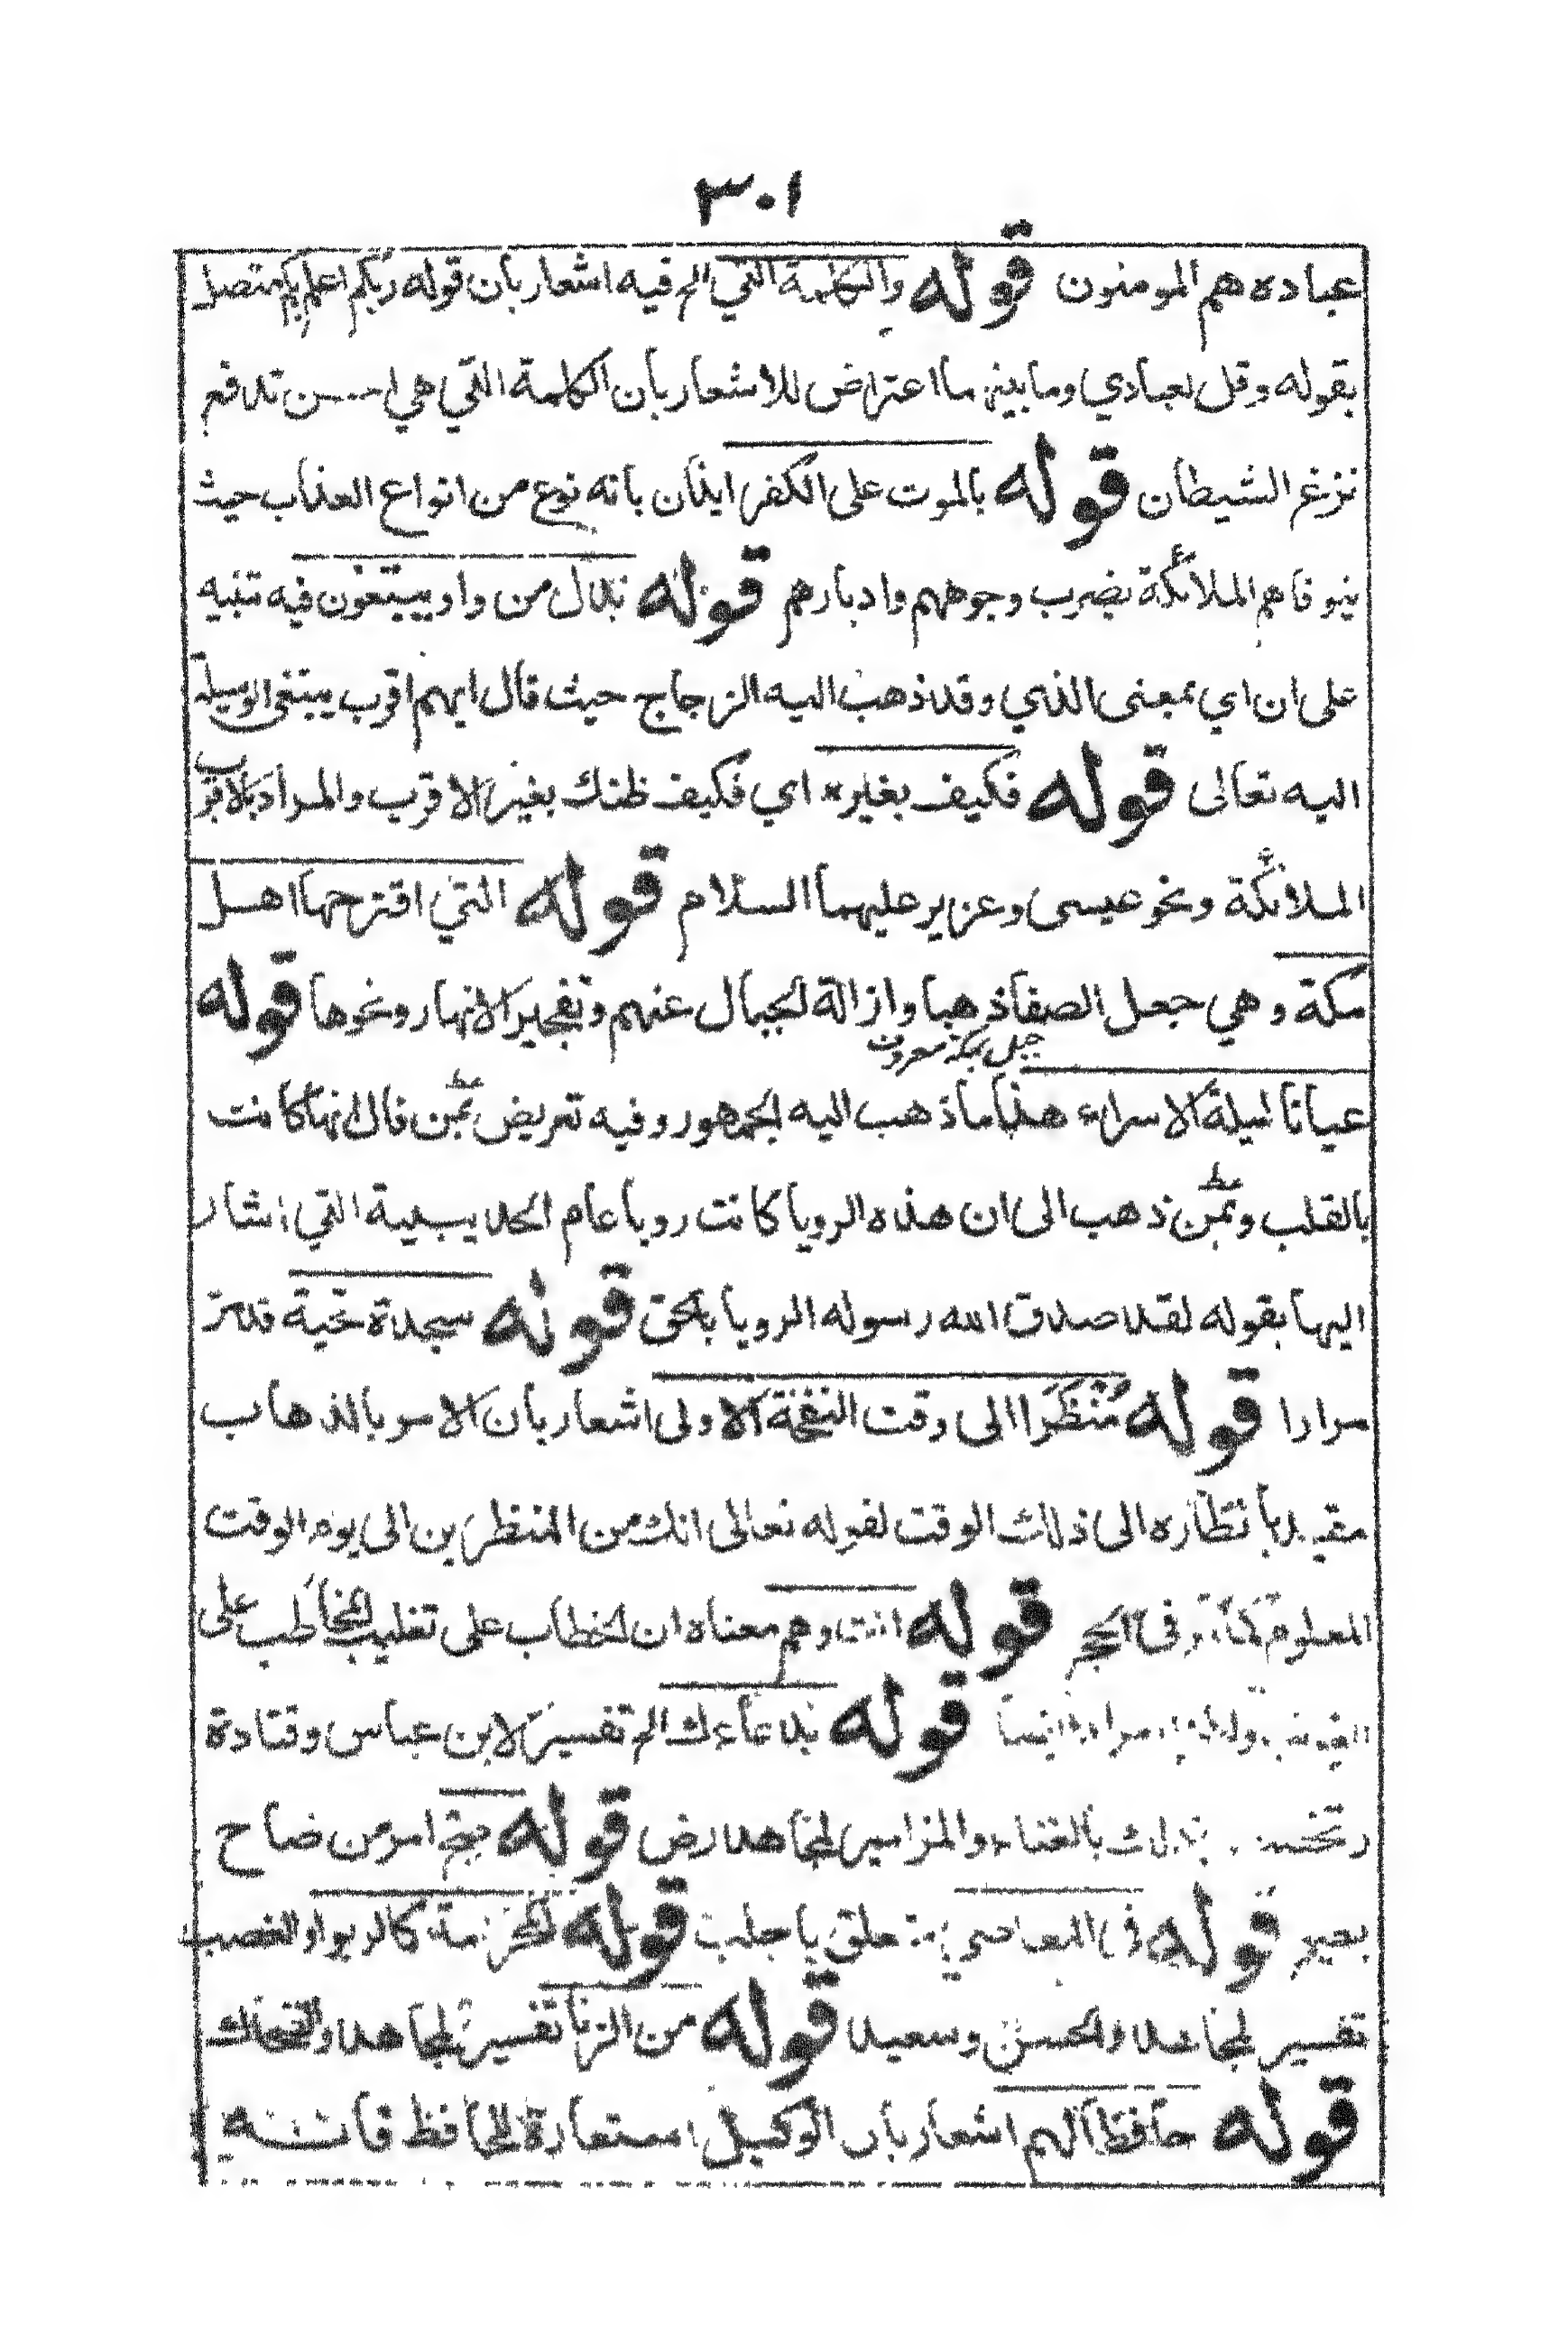 ٣٠١
عباده هم المومنون قوله والكلمة التي الم فيه اشعار بان قوله ربكم اعلم بكم متصل
بقوله وقل لعبادي وما بينهما اعتراض للاشعار بان الكلمة التي هي احسن تدفع
نزغ الشيطان قوله بالموت على الكفر ايذان بانه نوع من انواع العذاب حيث
يتوفاهم الملائكة يضرب وجوههم وادبارهم قوله بدل من واو يبتغون فيه تنبيه
على ان اي بمعنى الذي وقد ذهب اليه الزجاج حيث قال ايهم اقرب يبتغى الوسيلة
اليه تعالى قوله فكيف بغيره اي فكيف ظنك بغير الاقرب والمراد بالاقرب
الملائكة ونحو عيسى وعزير عليهما السلام قوله التي اقترحها اهل
مكة وهي جعل الصفا ذهبا وازالة الجبال عنهم وتفجير الانهار ونحوها قوله
جبل بمكة معروف
عيانا ليلة الاسراء هذا ما ذهب اليه الجمهور وفيه تعريض بمن قال انها كانت
بالقلب وبمن ذهب الى ان هذه الرويا كانت رويا عام الحديبية التي اشار
اليها بقوله لقد صدق الله رسوله الرويا بالحق قوله سجدة تحية قد مر
مرارا قوله مُنْظَرًا الى وقت النفخة الاولى اشعار بان الامر بالذهاب
مقيد بانتظاره الى ذلك الوقت لقوله تعالى انك من المنظرين الى يوم الوقت
المعلوم كما مر في الحجر قوله انت وهم معناه ان الخطاب على تغليب المخاطب على
الغائب قوله بدعاءك الم تفسير لابن عباس وقتادة
بالغناء والمزامير لمجاهد رض قوله صح امر من صاح
يصيح قوله في المعاصي متعلق باجلب قوله المحرمة كالربوا والغصب
تفسير لمجاهد والحسن وسعيد قوله من الزنا تفسير لمجاهد والضحاك
قوله حافظا لهم اشعار بان الوكيل استعارة للحافظ فانه